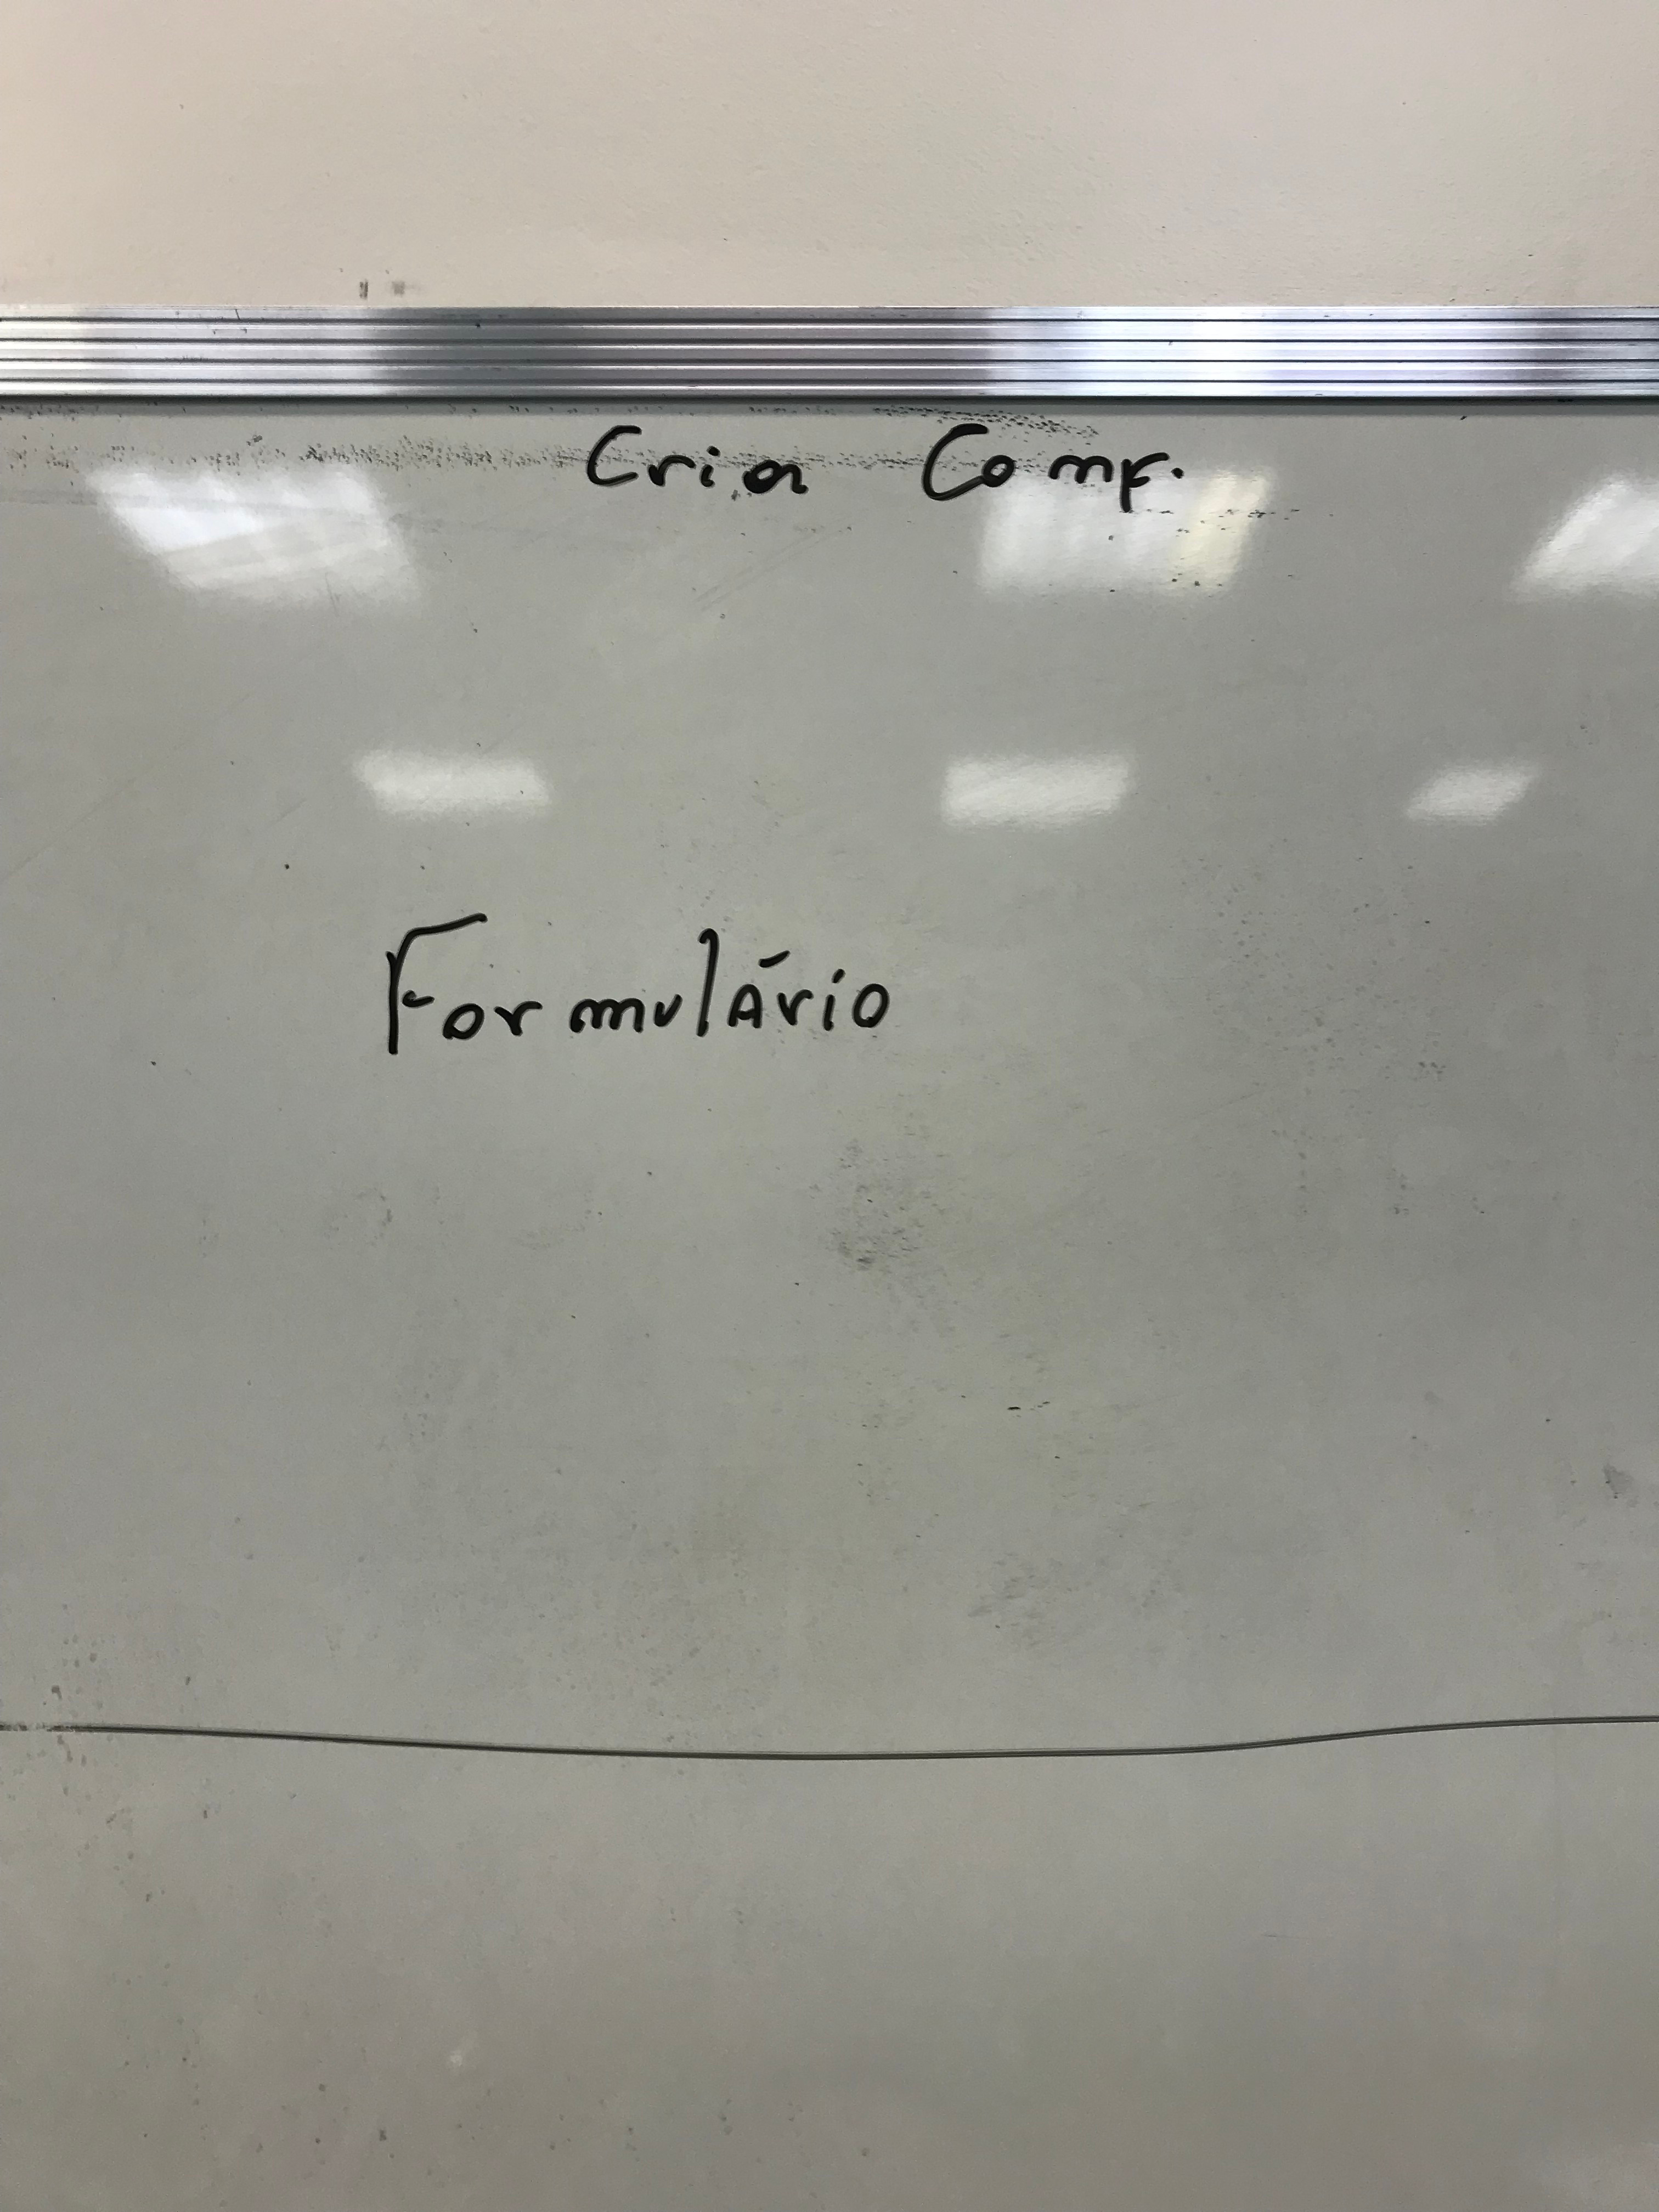 Cria Comp.
Formulário